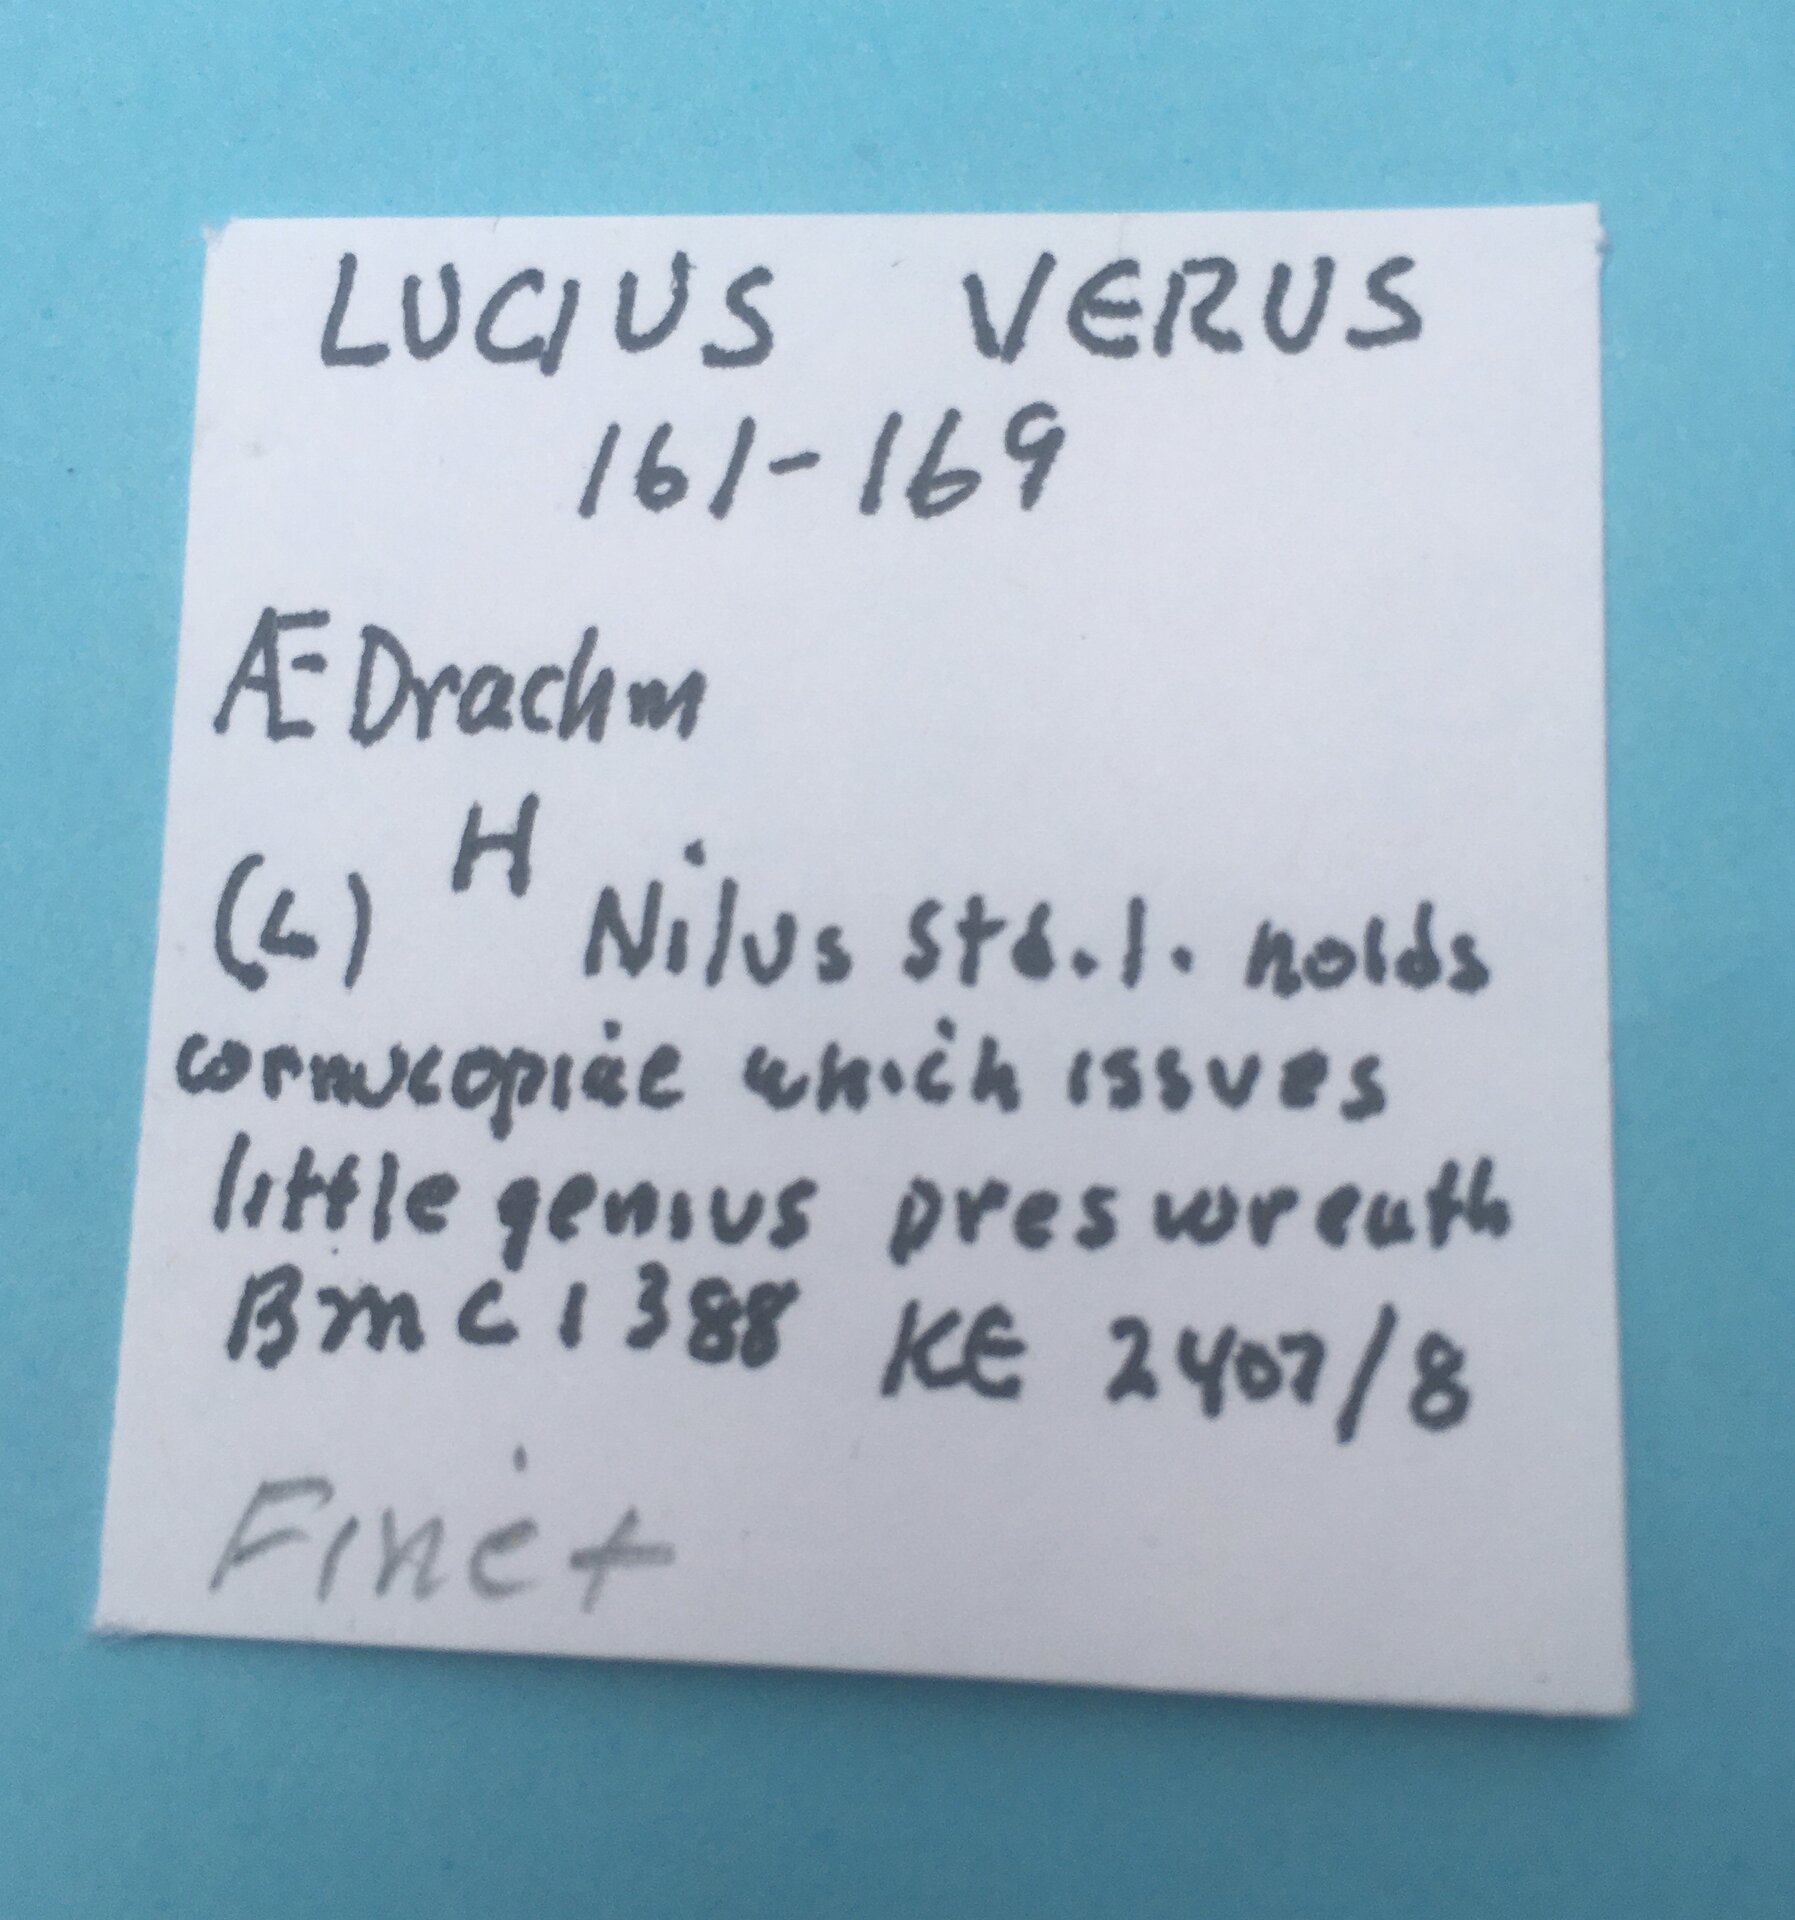 LUCIUS VERUS
161-169
Æ Drachm
(L) H Nilus std. l. holds
cornucopiae which issues
little genius pres wreath
BMC 1388 KE 2407/8
Fine+